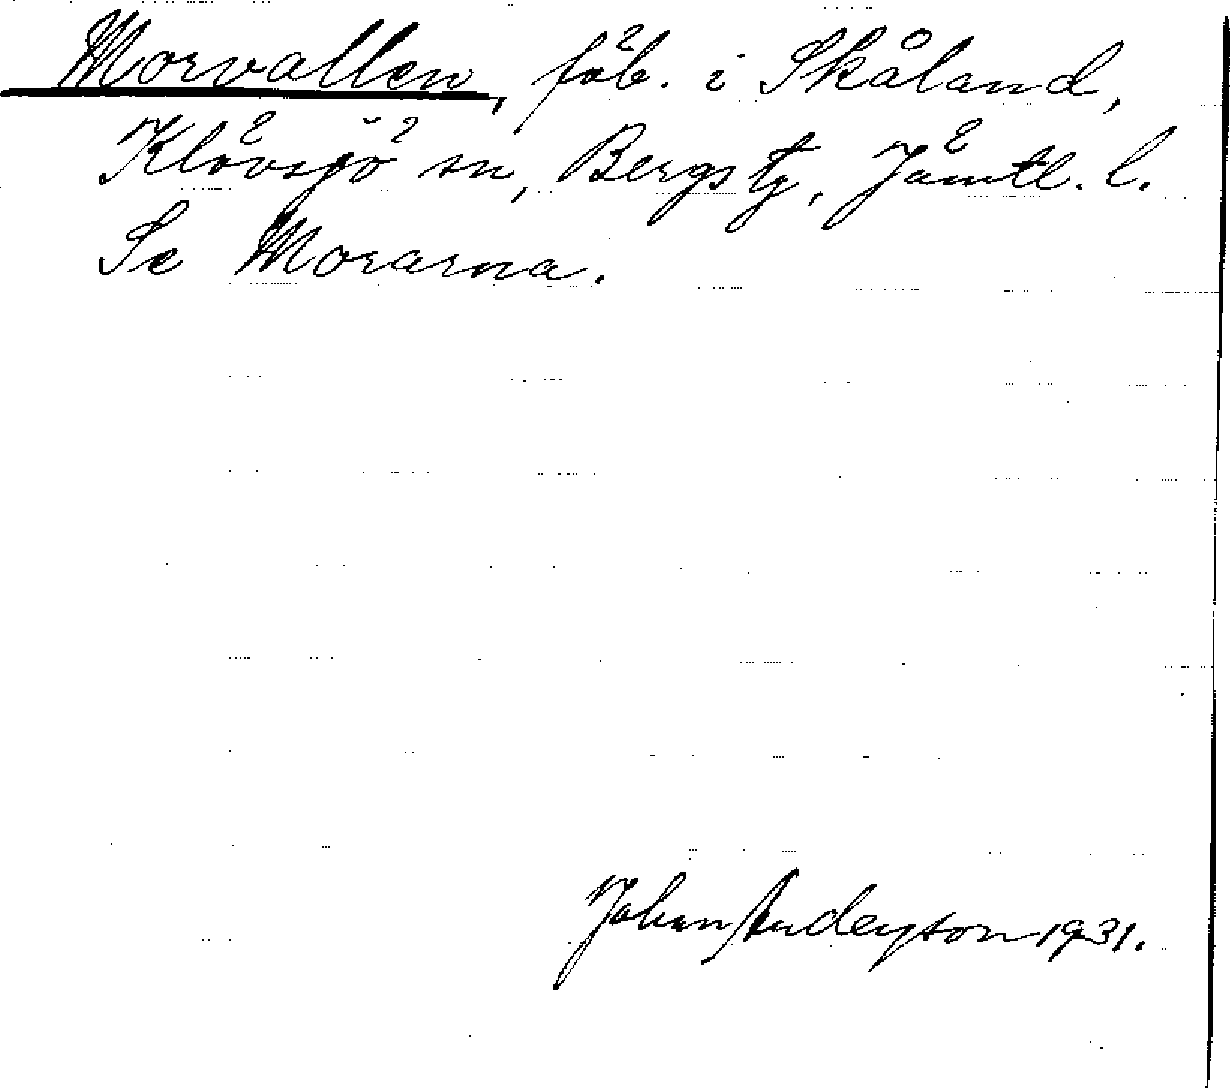 Morvallen, fäb. i Skåland,
Klövsjö sn, Bergs tg, Jämtl. l.
Se Morarna.
Johan Anderson 1931.